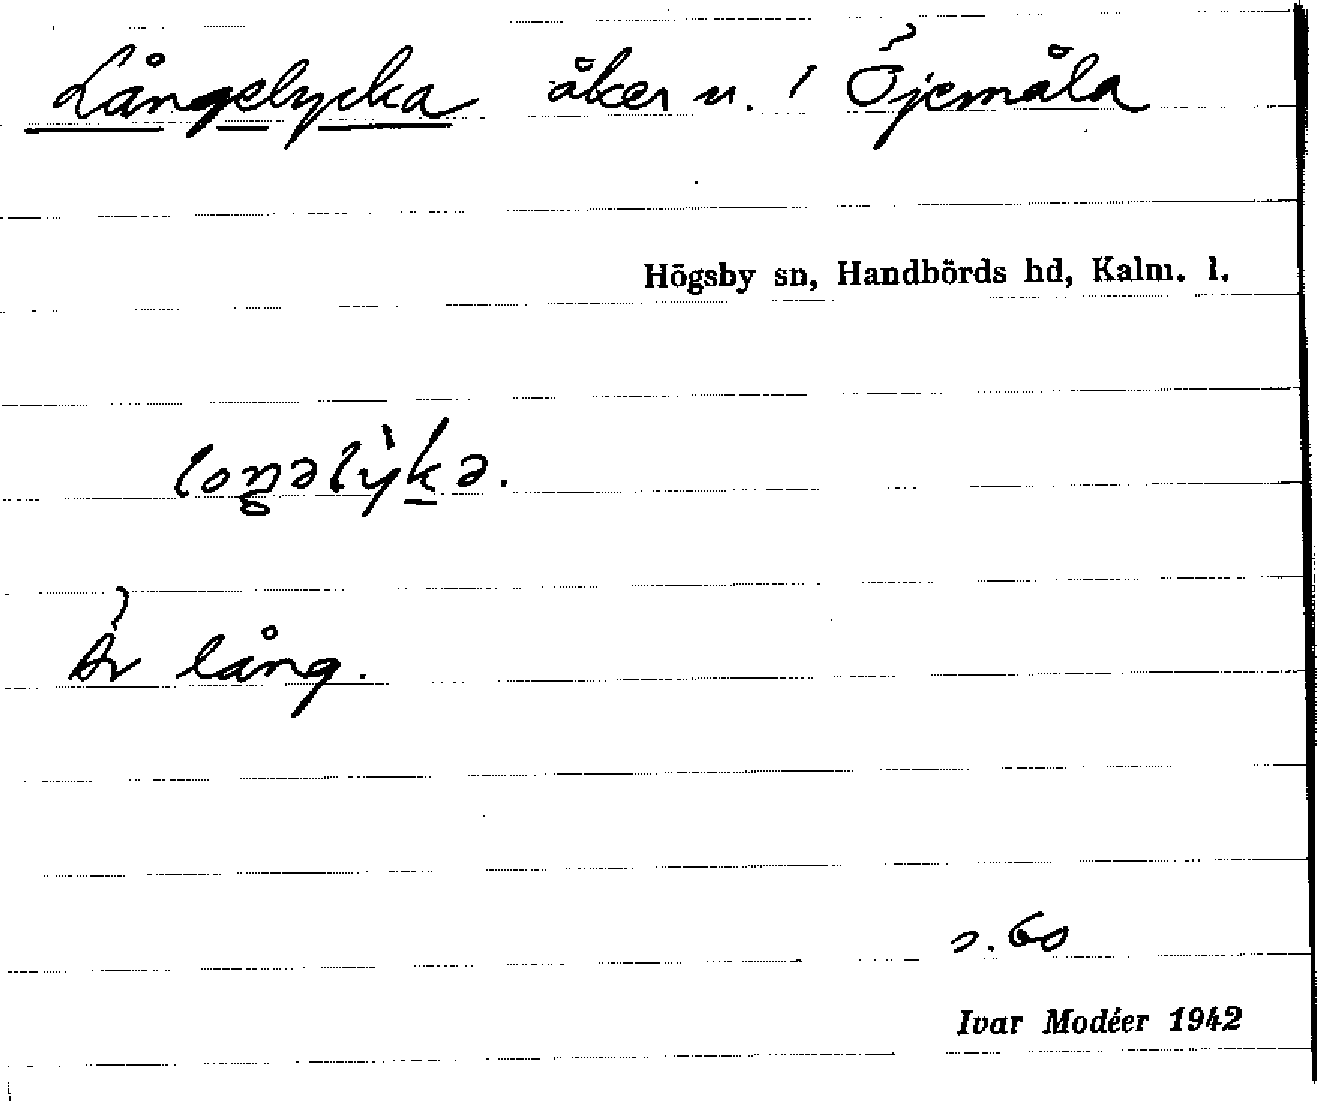 Långelycka åker n. i Öjemåla
Högsby sn, Handbörds hd, Kalm. l.
loŋəlỳkə.
Är lång.
s. 60
Ivar Modéer 1942